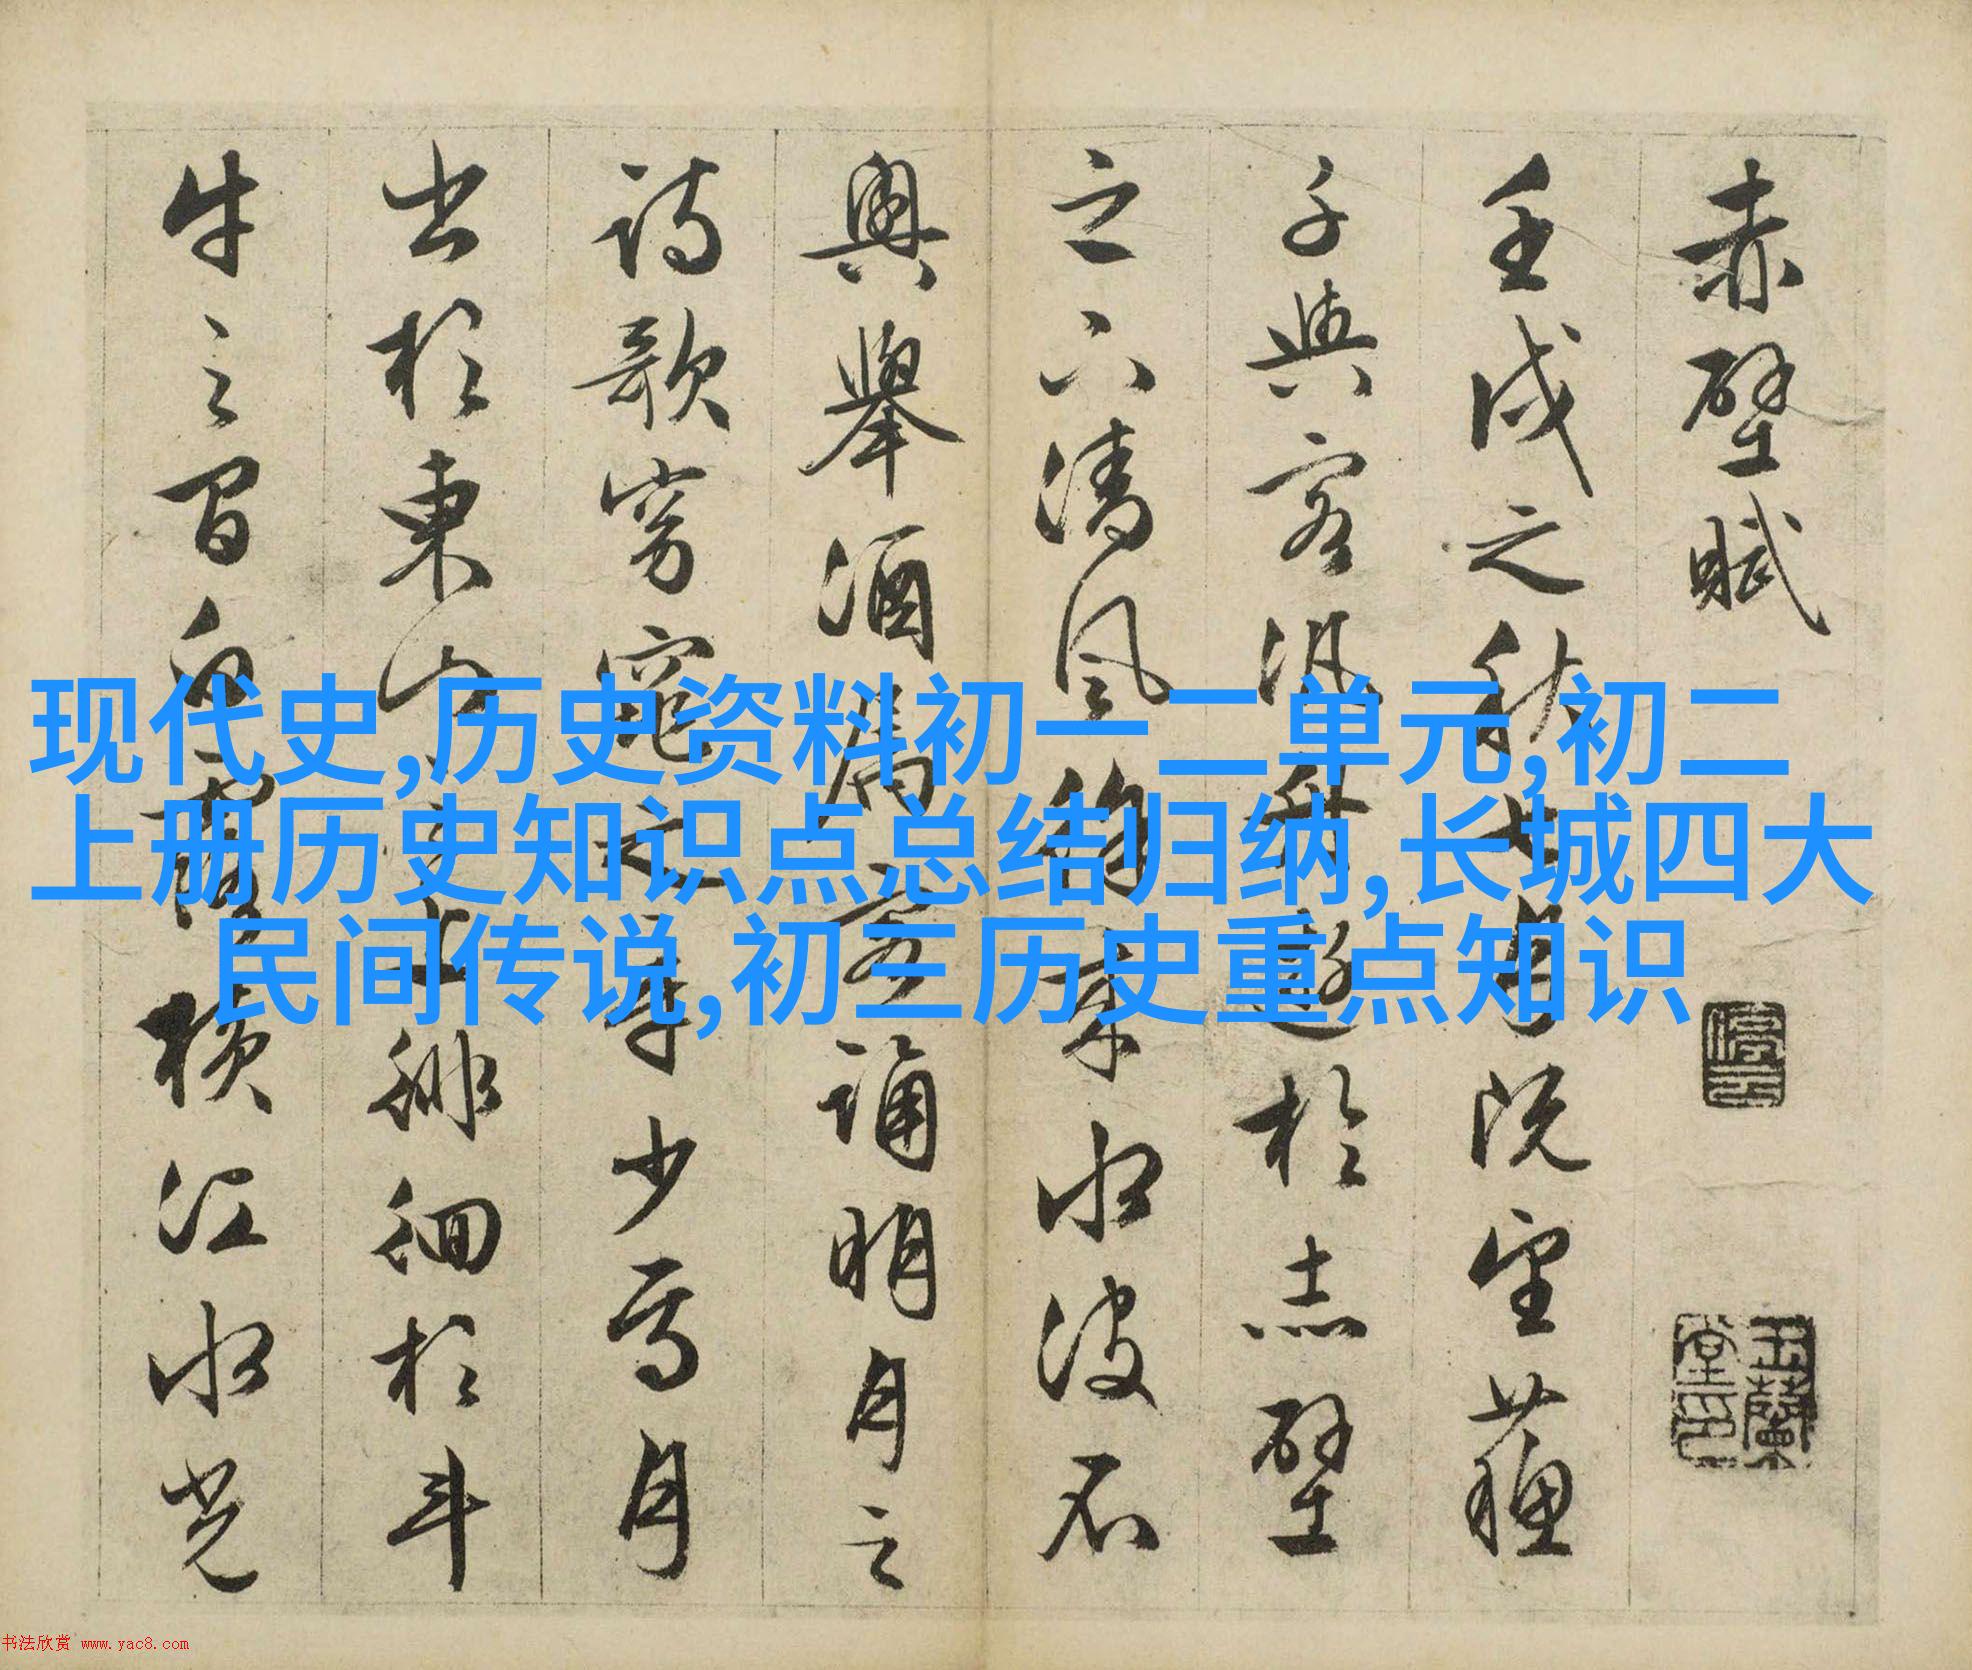 赤壁賦
壬戌之秋七月既望蘇
子與客汎舟遊於赤壁
之下清風徐來水波不
興舉酒屬客誦明月之
詩歌窈窕之章少焉月
出於東山之上徘徊於斗
牛之間白露橫江水光
现代史,历史资料初一二单元,初二
上册历史知识点总结归纳,长城四大
民间传说,初三历史重点知识
停云
玉蘭堂印
书法欣赏 www.yac8.com